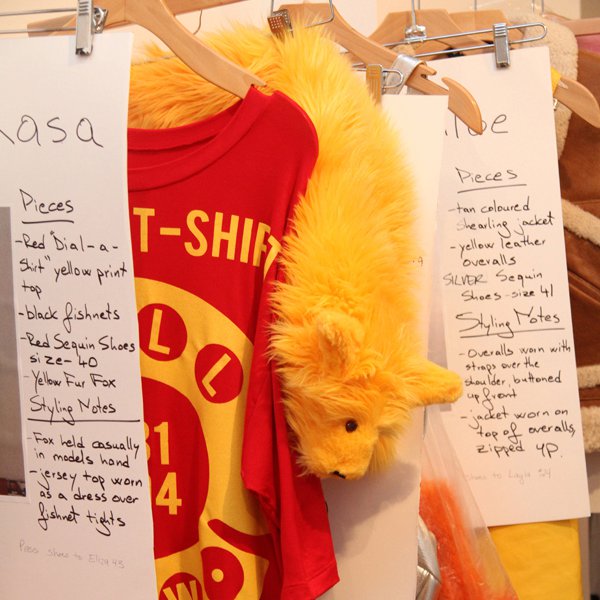 Kasa
Pieces
-Red "Dial-a-
Shirt" yellow print
top
-black fishnets
-Red Sequin Shoes
size-40
-Yellow Fur Fox
Styling Notes
-Fox held casually
in models hand
-jersey top worn
as a dress over
fishnet tights
Pass shoes to Eliza 43
T-SHIRT
L
L
31
14
W
Pieces
-tan coloured
shearling jacket
-yellow leather
overalls
SILVER Sequin
Shoes-size 41
Styling Notes
-Overalls worn with
straps over the
shoulder, buttoned
up front
-jacket worn on
top of overalls,
zipped up.
Shoes to Layla